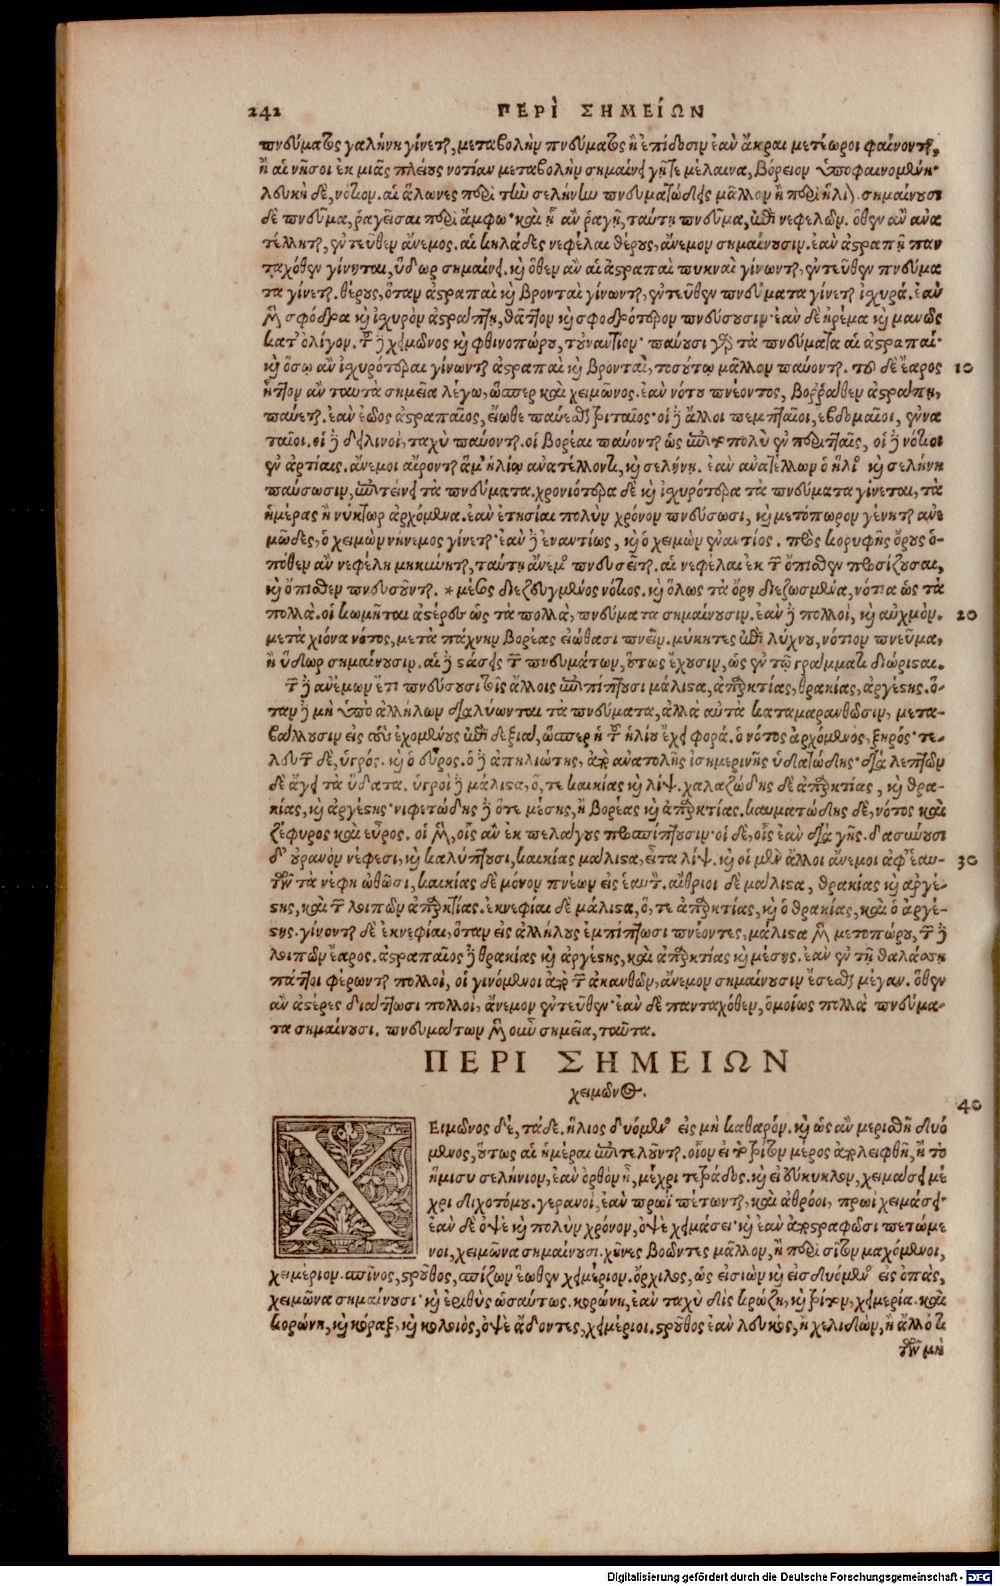 242 ΠΕΡῚ ΣΗΜΕΊΩΝ
πνεύματος γαλήνη γίνεται, μεταβολὴν πνεύματος ἢ ἐπίδοσιν ἐὰν ἄκραι μετέωροι φαίνονται,
ἢ αἱ νῆσοι ἐκ μιᾶς πλείους νοτίαν μεταβολὴν σημαίνει γῆ τε μέλαινα, βόρειον ὑποφαινομένη·
λευκὴ δὲ, νότιον. αἱ ἅλωνες περὶ τὴν σελήνην πνευματώδεις μᾶλλον ἢ περὶ ἥλιον. σημαίνουσι
δὲ πνεῦμα, ῥαγεῖσαι περὶ ἄμφω· καὶ ᾗ ἂν ῥαγῇ, ταύτῃ πνεῦμα, ἐπὶ νεφελῶν. ὅθεν ἂν ἀνα
τέλληται, ἐντεῦθεν ἄνεμος. αἱ κηλάδες νεφέλαι θέρους, ἄνεμον σημαίνουσιν. ἐὰν ἀστραπῇ παν
ταχόθεν γίνηται, ὕδωρ σημαίνει. καὶ ὅθεν ἂν αἱ ἀστραπαὶ πυκναὶ γίνωνται, ἐντεῦθεν πνεύμα
τα γίνεται. θέρους, ὅταν ἀστραπαὶ καὶ βρονταὶ γίνωνται, ἐντεῦθεν πνεύματα γίνεται ἰσχυρά. ἐὰν
μὲν σφόδρα καὶ ἰσχυρὸν ἀστράπτῃ, θᾶττον καὶ σφοδρότερον πνεύσουσιν· ἐὰν δὲ ἠρέμα καὶ μανῶς
κατ᾽ ὀλίγον. τοῦ δὲ χειμῶνος καὶ φθινοπώρου, τοὐναντίον· παύουσι γὰρ τὰ πνεύματα αἱ ἀστραπαί·
καὶ ὅσῳ ἂν ἰσχυρότεραι γίνωνται ἀστραπαὶ καὶ βρονταὶ, τοσούτῳ μᾶλλον παύονται. τοῦ δὲ ἔαρος 10
ἧττον ἂν ταυτὰ σημεῖα λέγω, ὥσπερ καὶ χειμῶνος. ἐὰν νότου πνέοντος, βοῤῥᾶθεν ἀστράπτῃ,
παύεται. ἐὰν ἕδος ἀστραπαῖος, εἴωθε παύεσθαι τριταῖος· οἱ δὲ ἄλλοι πεμπταῖοι, ἑβδομαῖοι, ἐννα
ταῖοι. οἱ δὲ δειλινοὶ, ταχὺ παύονται. οἱ βορέαι παύονται ὡς ἐπὶ τὸ πολὺ ἐν περιτταῖς, οἱ δὲ νότιοι
ἐν ἀρτίαις. ἄνεμοι αἴρονται ἅμ᾽ ἡλίῳ ἀνατέλλοντι, καὶ σελήνῃ. ἐὰν ἀνατέλλων ὁ ἥλιος καὶ σελήνη
παύσωσιν, ἐπιτείνει τὰ πνεύματα. χρονιότερα δὲ καὶ ἰσχυρότερα τὰ πνεύματα γίνεται, τὰ
ἡμέρας ἢ νύκτωρ ἀρχόμενα. ἐὰν ἐτησίαι πολὺν χρόνον πνεύσωσι, καὶ μετόπωρον γένηται ἀνε
μῶδες, ὁ χειμὼν νήνεμος γίνεται· ἐὰν δὲ ἐναντίως, καὶ ὁ χειμὼν ἐναντίος. πρὸς κορυφῆς ὄρους ὁ-
πόθεν ἂν νεφέλη μηκύνηται, ταύτῃ ἄνεμος πνευσεῖται. αἱ νεφέλαι ἐκ τοῦ ὄπισθεν προσίζουσαι,
καὶ ὄπισθεν πνευσοῦνται. * μέρος διεζευγμένος νότιος. καὶ ὅλως τὰ ὄρη διεζωσμένα, νότια ὡς τὰ
πολλά. οἱ κομῆται ἀστέρες ὡς τὰ πολλὰ, πνεύματα σημαίνουσιν. ἐὰν δὲ πολλοὶ, καὶ αὐχμόν. 20
μετὰ χιόνα νότος, μετὰ πάχνην βορέας εἰώθασι πνεῖν. μύκητες ἐπὶ λύχνου, νότιον πνεῦμα,
ἢ ὕδωρ σημαίνουσιν. αἱ δὲ στάσεις τῶν πνευμάτων, οὕτως ἔχουσιν, ὡς ἐν τῷ γράμματι διώρισται.
τῶν δὲ ἀνέμων ἔτι πνεύσουσι τοῖς ἄλλοις ἐπιπίπτουσι μάλιστα, ἀπαρκτίας, θρακίας, ἀργέστης. ὅ-
ταν δὲ μὴ ὑπὸ ἀλλήλων διαλύωνται τὰ πνεύματα, ἀλλὰ αὐτὰ καταμαρανθῶσιν, μετα-
βάλλουσιν εἰς τοὺς ἐχομένους ἐπὶ δεξιὰ, ὥσπερ ἡ τοῦ ἡλίου ἔχει φορά. ὁ νότος ἀρχόμενος, ξηρός· τε-
λευτῶν δὲ, ὑγρός. καὶ ὁ εὖρος. ὁ δὲ ἀπηλιώτης, ἀπ᾽ ἀνατολῆς ἰσημερινῆς ὑδατώδης· διὰ λεπτῶν
δὲ ἄγει τὰ ὕδατα. ὑγροὶ δὲ μάλιστα, ὅ, τε καικίας καὶ λίψ. χαλαζώδης δὲ ἀπαρκτίας, καὶ θρα-
κίας, καὶ ἀργέστης· νιφετώδης δὲ ὅτε μέσης, ἢ βορέας καὶ ἀπαρκτίας. καυματώδης δὲ, νότος καὶ
ζέφυρος καὶ εὖρος. οἱ μὲν, οἷς ἂν ἐκ πελάγους προσπίπτουσιν· οἱ δὲ, οἷς ἐὰν διὰ γῆς. δασύνουσι
δ᾽ οὐρανὸν νέφεσι, καὶ καλύπτουσι, καικίας μάλιστα, εἶτα λίψ. καὶ οἱ μὲν ἄλλοι ἄνεμοι ἀφ᾽ ἑαυ- 30
τῶν τὰ νέφη ὠθοῦσι, καικίας δὲ μόνον πνέων εἰς ἑαυτόν. αἴθριοι δὲ μάλιστα, θρακίας καὶ ἀργέ-
στης, καὶ τῶν λοιπῶν ἀπαρκτίας. ἐκνεφίαι δὲ μάλιστα, ὅ, τε ἀπαρκτίας, καὶ ὁ θρακίας, καὶ ὁ ἀργέ-
στης. γίνονται δὲ ἐκνεφίαι, ὅταν εἰς ἀλλήλους ἐμπίπτωσι πνέοντες, μάλιστα μὲν μετοπώρου, τῶν δὲ
λοιπῶν ἔαρος. ἀστραπαῖος δὲ θρακίας καὶ ἀργέστης, καὶ ἀπαρκτίας καὶ μέσης. ἐὰν ἐν τῇ θαλάσσῃ
πάπποι φέρωνται πολλοὶ, οἱ γινόμενοι ἀπὸ τῶν ἀκανθῶν, ἄνεμον σημαίνουσιν ἔσεσθαι μέγαν. ὅθεν
ἂν ἀστέρες διάττωσι πολλοὶ, ἄνεμον ἐντεῦθεν· ἐὰν δὲ πανταχόθεν, ὁμοίως πολλὰ πνεύμα-
τα σημαίνουσι. πνευμάτων μὲν οὖν σημεῖα, ταῦτα.
ΠΕΡΙ ΣΗΜΕΙΩΝ
χειμῶνος.
40
ΧΕιμῶνος δὲ, τάδε. ἥλιος δυόμενος εἰς μὴ καθαρόν. καὶ ὡς ἂν μερισθῇ δυό
μενος, οὕτως αἱ ἡμέραι ἐπιτελοῦνται. οἷον εἰ τὸ τρίτον μέρος ἀπολειφθῇ, ἢ τὸ
ἥμισυ σελήνιον, ἐὰν ὀρθὸν ᾖ, μέχρι τετράδος. καὶ εἰ εὔκυκλον, χειμάσει μέ
χρι διχοτόμου. γερανοὶ, ἐὰν πρωῒ πέτωνται, καὶ ἀθρόοι, πρωῒ χειμάσει·
ἐὰν δὲ ὀψὲ καὶ πολὺν χρόνον, ὀψὲ χειμάσει· καὶ ἐὰν ἀποστραφῶσι πετώμε
νοι, χειμῶνα σημαίνουσι. χῆνες βοῶντες μᾶλλον, ἢ περὶ σῖτον μαχόμενοι,
χειμέριον. σπῖνος, στροῦθος, σπίζων ἕωθεν χειμέριον. ὄρχιλος, ὡς εἰσιὼν καὶ εἰσδυόμενος εἰς ὀπὰς,
χειμῶνα σημαίνουσι· καὶ ἐριθὺς ὡσαύτως. κορώνη, ἐὰν ταχὺ δὶς κρώζῃ, καὶ τρίτον, χειμέρια. καὶ
κορώνη, καὶ κόραξ, καὶ κολοιὸς, ὀψὲ ᾄδοντες, χειμέριοι. στροῦθος ἐὰν λευκὸς, ἢ χελιδὼν, ἢ ἄλλό τι
τῶν μὴ
Digitalisierung gefördert durch die Deutsche Forschungsgemeinschaft - DFG